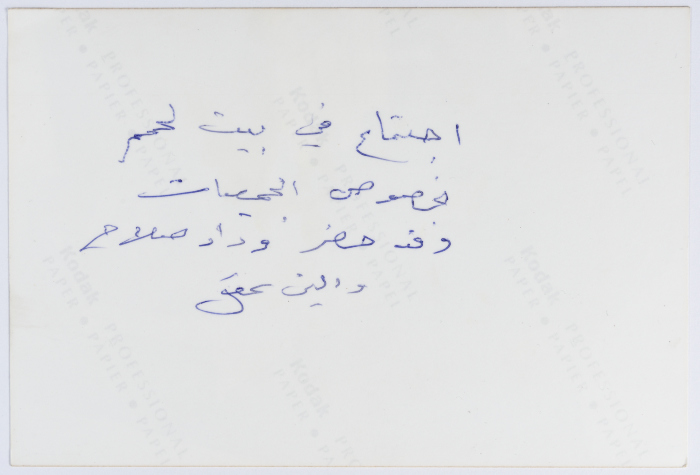 اجتماع في بيت لحم
بخصوص الجمعيات
وقد حضر وداد صلاح
Kodak PROFESSIONAL PAPER
Kodak PROFESSIONAL PAPER
Kodak PROFESSIONAL PAPER
Kodak PROFESSIONAL PAPER
Kodak PROFESSIONAL PAPER